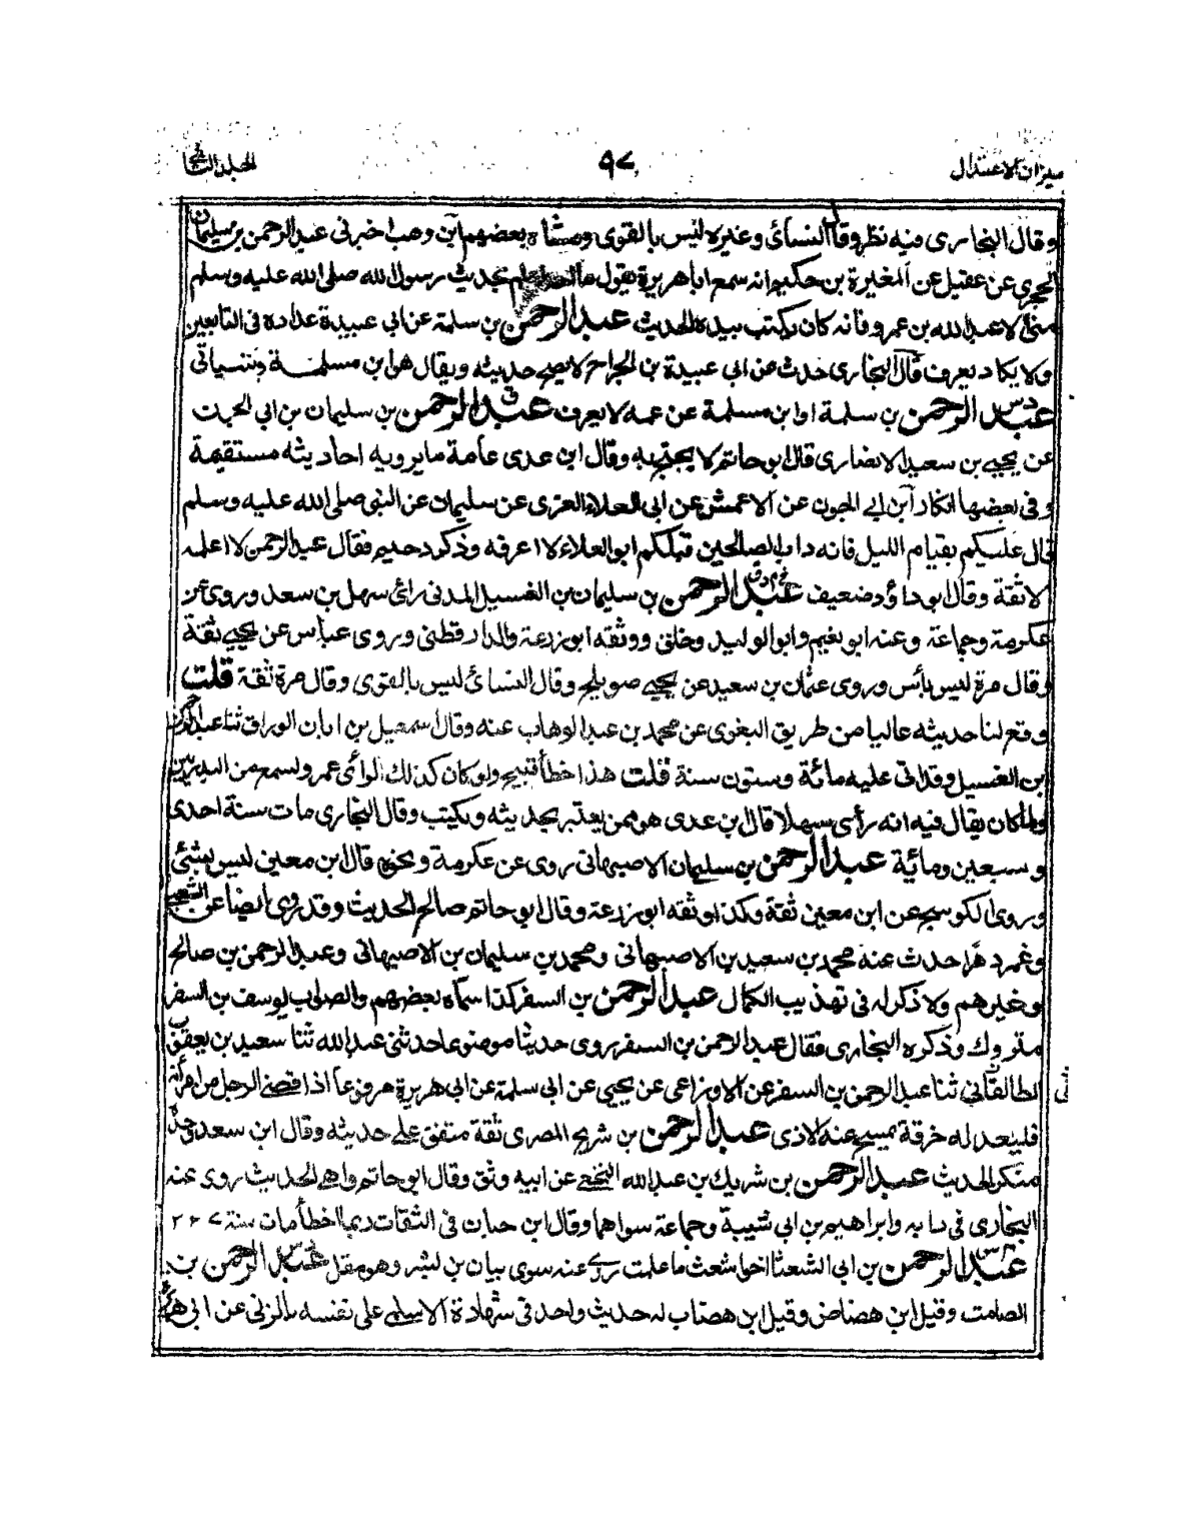 ميزان الاعتدال ٩٧ المجلد الثاني
وقال البخاري فيه نظر وقال النسائي وغيره ليس بالقوي ومشاه بعضهم ابن وهب اخبرني عبد الرحمن بن سليمان
الحجري عن عقيل عن المغيرة بن حكيم انه سمع ابا هريرة يقول ما احد اعلم بحديث رسول الله صلى الله عليه وسلم
مني الا عبد الله بن عمرو فانه كان يكتب بيده الحديث عبد الرحمن بن سلمة عن ابي عبيدة عداده في التابعين
ولا يكاد يعرف قال البخاري حدث عن ابي عبيدة بن الجراح لا يصح حديثه ويقال هو ابن مسلمة وسياتي
عبد الرحمن بن سلمة او ابن مسلمة عن عمه لا يعرف عبد الرحمن بن سليمان بن ابي الجون
عن يحيى بن سعيد الانصاري قال ابو حاتم لا يحتج به وقال ابن عدي عامة ما يرويه احاديثه مستقيمة
وفي بعضها انكار ابن ابي الجون عن الاعمش عن ابي العلاء العنزي عن سلمان عن النبي صلى الله عليه وسلم
قال عليكم بقيام الليل فانه داب الصالحين قبلكم ابو العلاء لا اعرفه وذكر دحيم فقال عبد الرحمن لا اعلمه
الا ثقة وقال ابو داؤد ضعيف عبد الرحمن بن سليمان بن الغسيل المدني رائ سهل بن سعد وروى عن
عكرمة وجماعة وعنه ابو نعيم وابو الوليد وخلق ووثقه ابو زرعة والدارقطني وروى عباس عن يحيى ثقة
وقال مرة ليس بأس وروى عثمان بن سعيد عن يحيى صويلح وقال النسائي ليس بالقوي وقال مرة ثقة قلت
وقع لنا حديثه عاليا من طريق البغوي عن محمد بن عبد الوهاب عنه وقال اسمعيل بن ابان الوراق ثنا عبد الرحمن
ابن الغسيل وقد اتى عليه مائة وستون سنة قلت هذا خطأ قبيح ولو كان كذلك لرأى عمر ولسمع من البدريين
ولما كان يقال فيه انه رأى سهلا قال بن عدي هو ممن يعتبر بحديثه ويكتب وقال البخاري مات سنة احدى
وسبعين ومائة عبد الرحمن بن سليمان الاصبهاني روى عن عكرمة ونحوه قال ابن معين ليس بشئ
وروى الكوسج عن ابن معين ثقة وكذا وثقه ابو زرعة وقال ابو حاتم صالح الحديث وقد روى ايضا عن الشعبي
وغمر دهرا حدث عنه محمد بن سعيد بن الاصبهاني ومحمد بن سليمان بن الاصبهاني وعبد الرحمن بن صالح
وغيرهم ولا ذكر له في تهذيب الكمال عبد الرحمن بن السفر كذا سماه بعضهم والصواب يوسف بن السفر
متروك وذكره البخاري فقال عبد الرحمن بن السفر روى حديثا موضوعا حدثني عبد الله ثنا سعيد بن يعقوب
الطالقاني ثنا عبد الرحمن بن السفر عن الاوزاعي عن يحيى عن ابي سلمة عن ابي هريرة مرفوعا اذا قضى الرجل من امرأته
فليعد له خرقة يمسح عنه الاذى عبد الرحمن بن شريح المصري ثقة متفق على حديثه وقال ابن سعد وحده
منكر الحديث عبد الرحمن بن شريك بن عبد الله النخعي عن ابيه وثق وقال ابو حاتم واهي الحديث روى عنه
البخاري في ادبه وابراهيم بن ابي شيبة وجماعة سواهما وقال ابن حبان في الثقات ربما اخطأ مات سنة ٢٢٧
عبد الرحمن بن ابي الشعثا اخو اشعث ما علمت روى عنه سوى بيان بن بشر وهو مقل عبد الرحمن بن
الصامت وقيل ابن هضاض وقيل ابن هضاب له حديث واحد في شهادة الاسلمي على نفسه بالزنى عن ابي هريرة